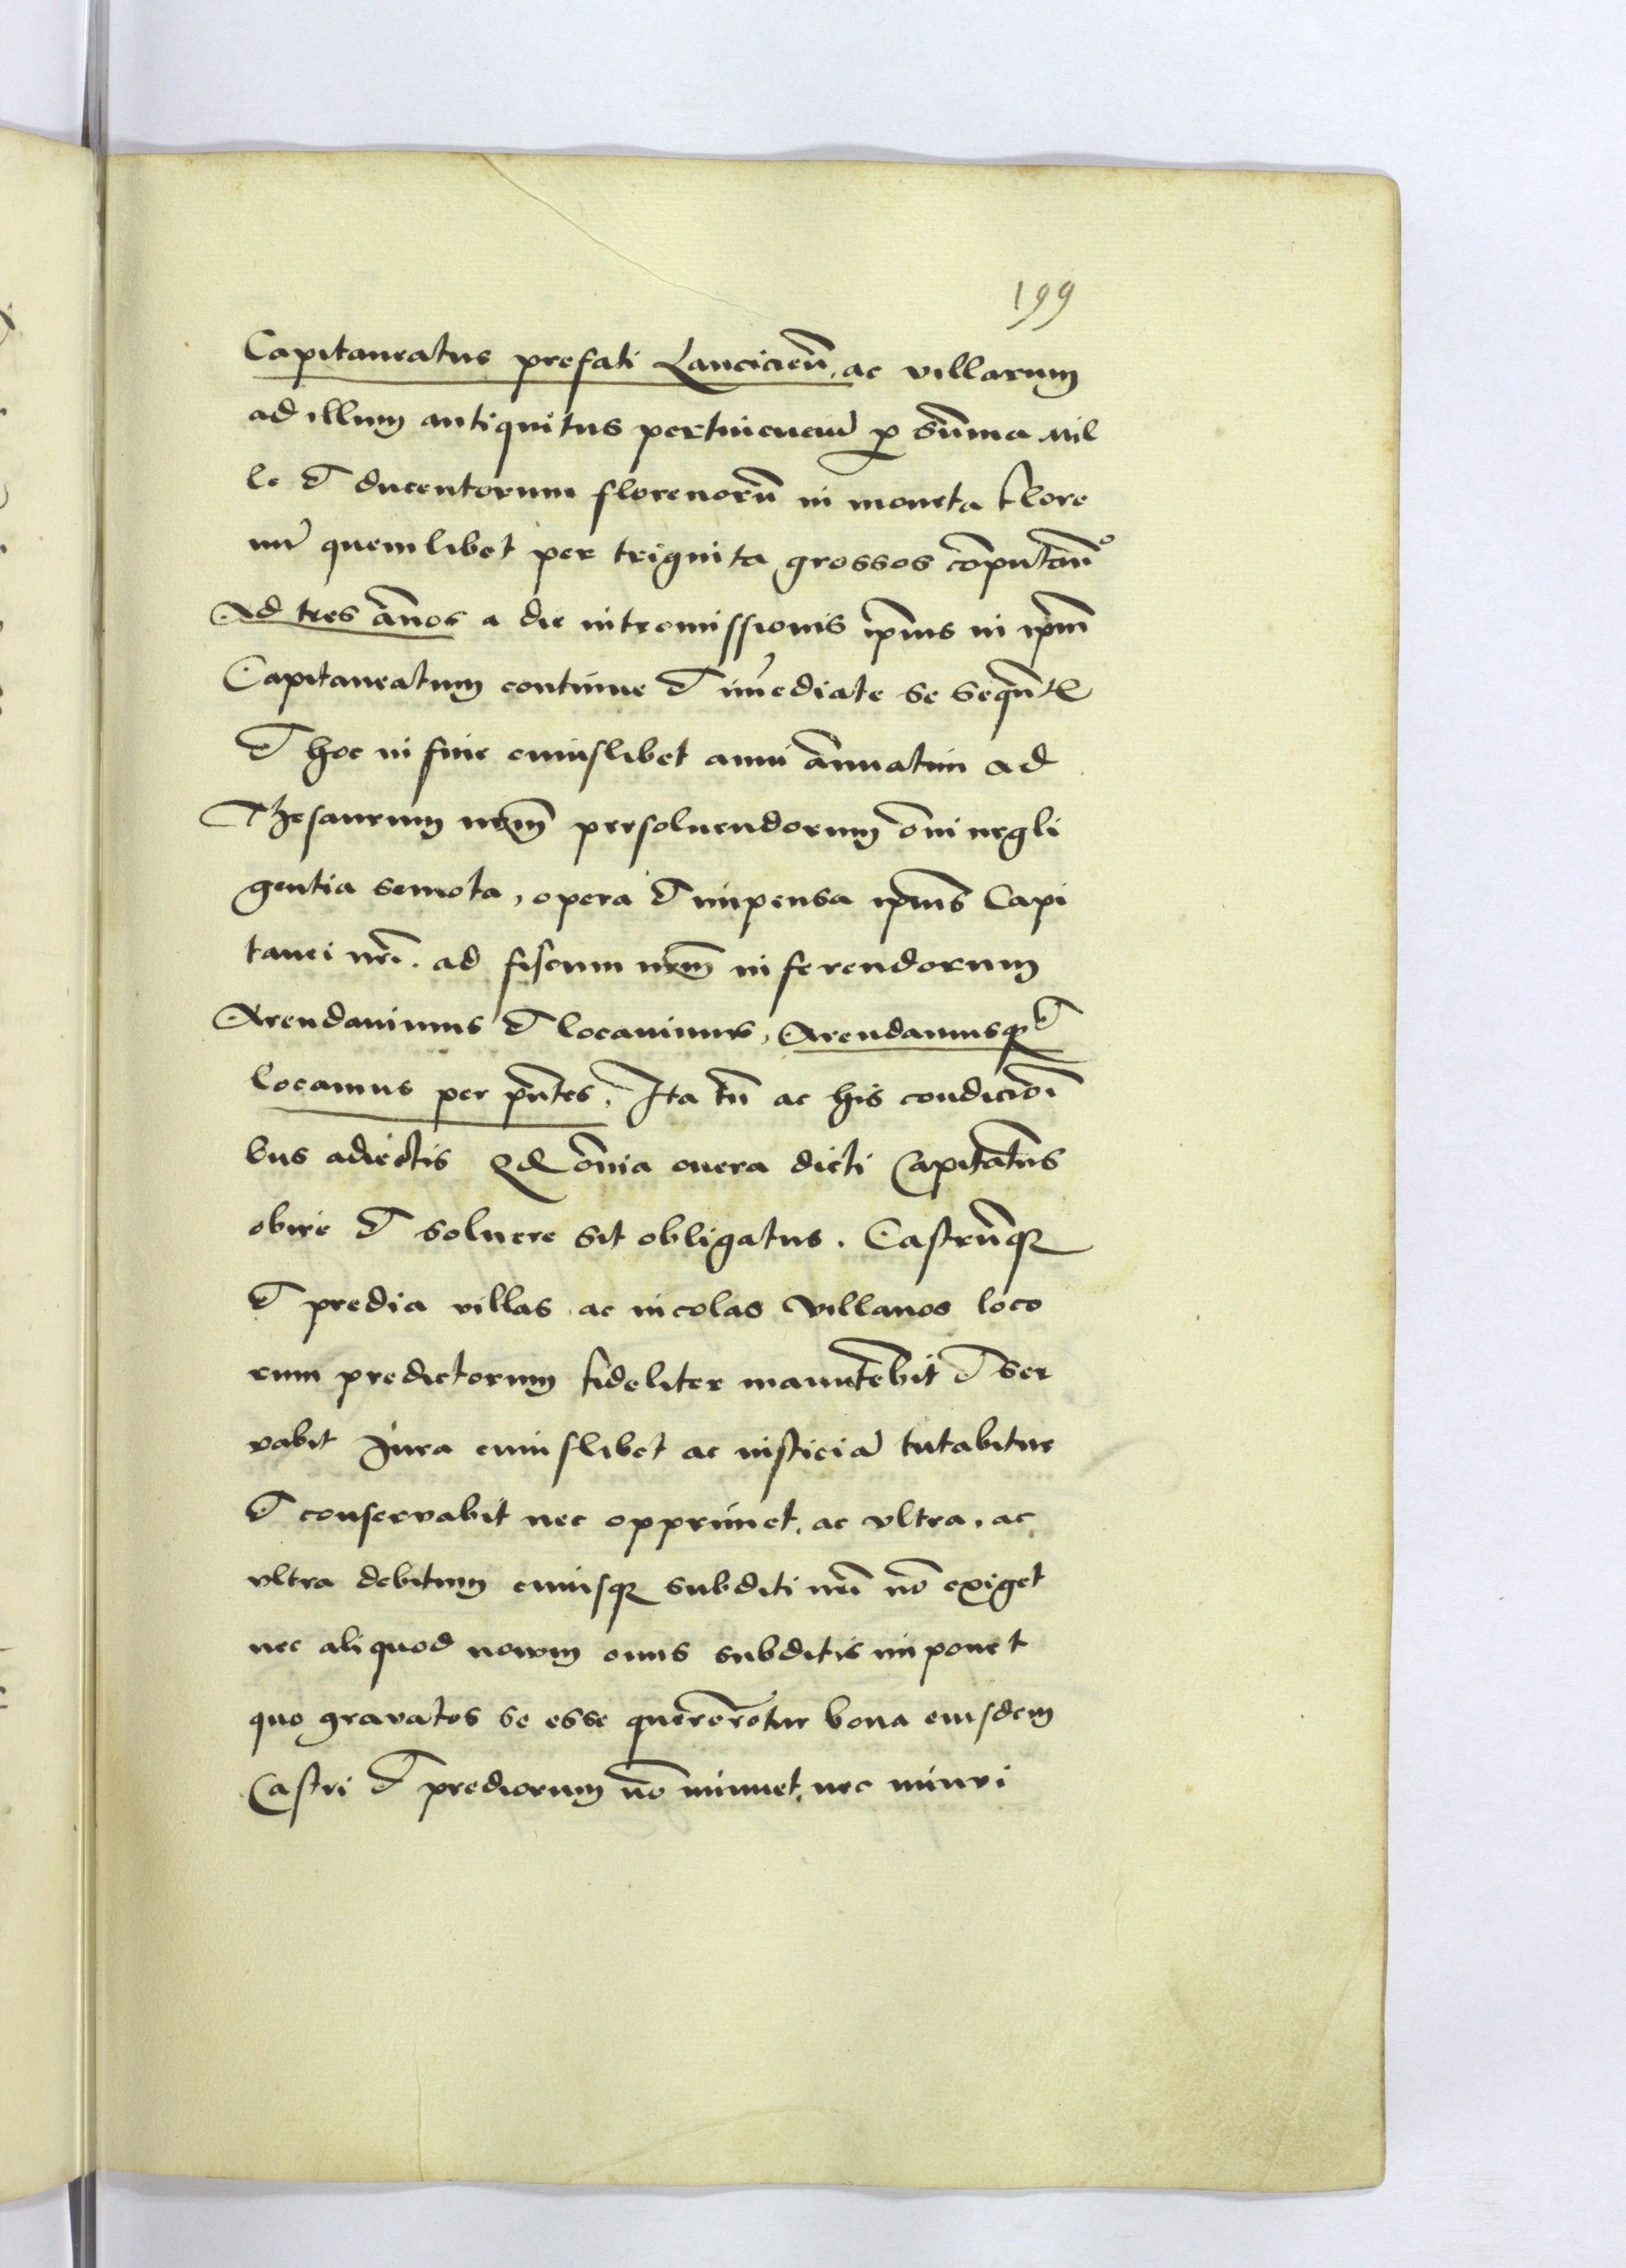 199
Capitaneatus prefati Lancicieñ. ac villarum
ad illum antiquitus pertinenciũ p̱ sũma mil
le et ducentorum florenorũ in moneta flore
nũ quemlibet per triginta grossos cõputañ°
Ad tres ãnos a die intromissionis ip̃ius in ip̃m
Capitaneatum continue et im̃ediate se sequñt
et hoc in fine cuiuslibet anni ãnuatim ad
Thesaurum nr̃m persoluendorum õni negli
gentia semota, opera et impensa ip̃ius Capi
tanei nr̃i. ad fiscum nr̃m inferendorum
Arendauimus et locauimus, Arendamusqꝫ et
locamus per p̃ntes. Ita tñ ac his condicioĩ
bus adiectis Qđ õnia onera dicti Capitat̃us
obire et soluere sit obligatus. Castrũqꝫ
et predia villas ac incolas villanos loco
rum predictorum fideliter manut̃ebit et ser
vabit Jura cuiuslibet ac iusticiã tutabitur
et conservabit nec opprimet, ac vltra, ac
vltra debitum cuiusqꝫ subditi nr̃i nõ exiget
nec aliquod nowm onus subditis imponet
quo gravatos se esse querer̃etur bona eiusdem
Castri et prediorum nõ minuet, nec minui